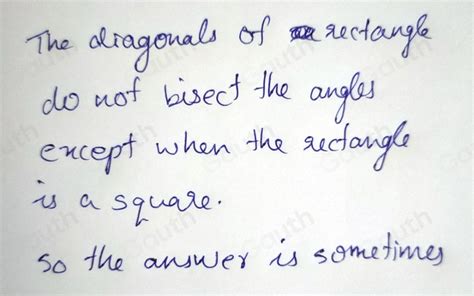 The diagonals of rectangle
do not bisect the angles
except when the rectangle
is a square.
so the answer is sometimes